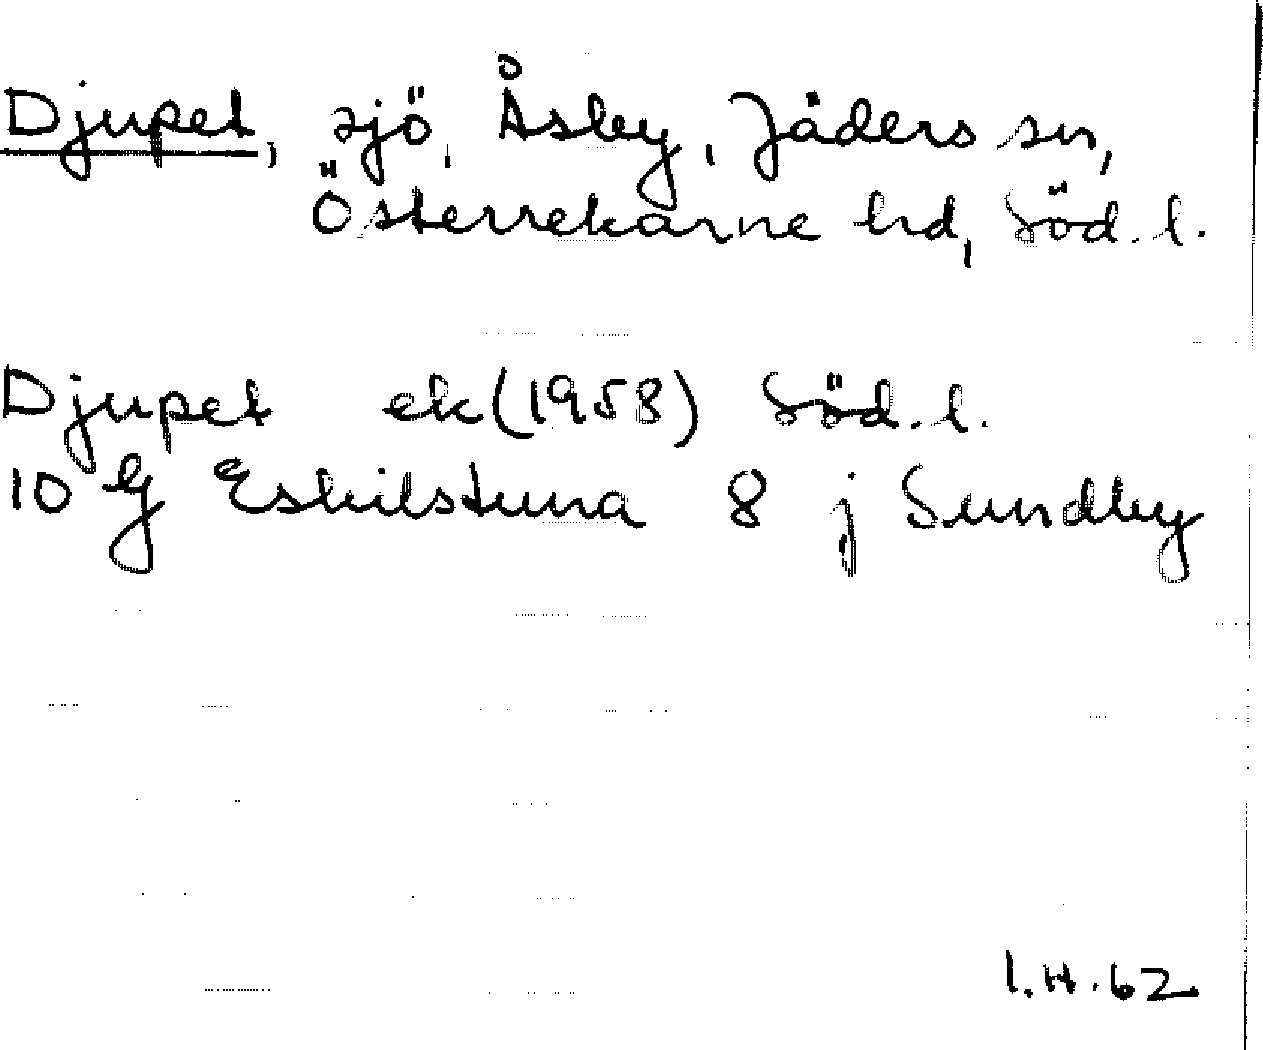 Djupet, sjö, Åsby, Jäders sn,
Österrekarne hd, Söd. l.
Djupet ek (1958) Söd. l.
10 G Eskilstuna 8 j Sundby
I.H.62